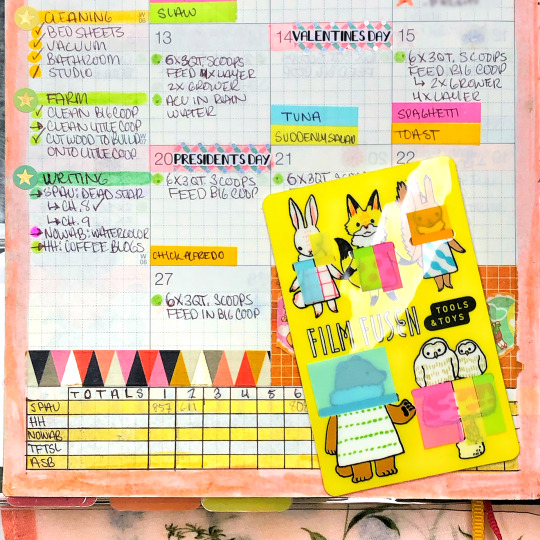 CLEANING
✓ BED SHEETS
✓ VACUUM
✓ BATHROOM
✓ STUDIO
FARM
✓ CLEAN BIG COOP
→ CLEAN LITTLE COOP
✓ CUT WOOD TO BUILD
ONTO LITTLE COOP
WRITING
→ SPAU: DEAD STAR
↳ CH. 8 ✓
↳ CH. 9
NOWAB: WATERCOLOR
HH: COFFEE BLOGS
SLAW
13
6X3QT. SCOOPS
FEED 4X LAYER
2X GROWER
ACV IN RAIN
WATER
14 VALENTINES DAY
TUNA
SUDDENLY SALAD
15
6X3QT. SCOOPS
FEED BIG COOP
↳ 2X GROWER
4X LAYER
SPAGHETTI
TOAST
20 PRESIDENTS DAY
6X3QT. SCOOPS
FEED BIG COOP
CHICK ALFREDO
21
6X3QT. SCOOPS
22
W
08
27
6X3QT. SCOOPS
FEED IN BIG COOP
FILM FUSEN
TOOLS
&TOYS
TOTALS 1 2 3 4 5 6
SPAU 857
HH
NOWAB
TFTSL
ASB